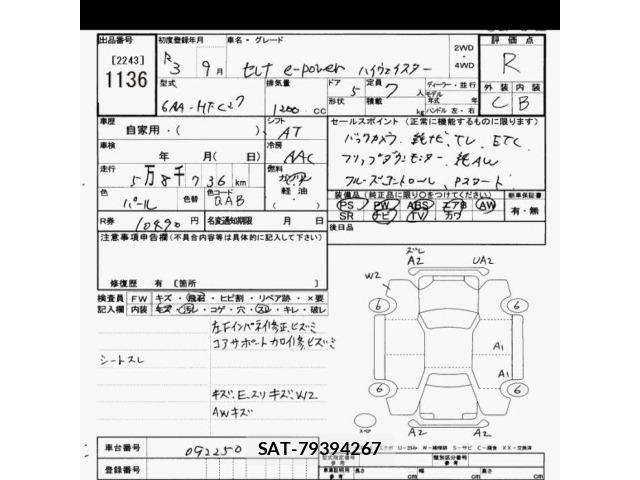 出品番号
[2243]
1136
初度登録年月
R3 9月
車名・グレード
セレナ e-power ハイウェイスター
2WD
4WD
評価点
R
型式
6AA-HFC27
排気量
1200 CC
ドア
5
形状
定員
7
人
積載
kg
ディーラー・並行
モデル
年式 年
ハンドル 左・右
外装 内装
C B
車歴
自家用・( )
シフト
AT
セールスポイント (正常に機能するものに限ります)
バックカメラ、純ナビ、TV、ETC
フリップダウンモニター、純AW
クルーズコントロール、Pスタート
車検
年 月( 日)
冷房
AAC
走行
5万8千736km
燃料
ガソリン
軽・油
色
パール
色替
色コード
QAB
装備品 (純正品に限り○をつけてください)
新車保証書
PS PW ABS エア B AW
SR ナビ TV カワ
有・無
R券
10490 円
名変通知期限 月 日
後日品
注意事項申告欄(不具合内容等は具体的に記入して下さい)
修復歴 有 [箇所 ]
検査員
記入欄
FW キズ・飛石・ヒビ割・リペア跡・×要
内装 キズ・汚レ・コゲ・穴・スレ・キレ・破レ
シートスレ
左下インパネ修正、ヒズミ
コアサポートカロイ修、ヒズミ
キズ、E、スリキズ、W2
AWキズ
ズレ
A2 UA2
W2
6 6
A1
A1
6 6
スペア
A2 A2
車台番号
092250
登録番号
SAT-79394267
型式指定番号
参考
類別区分番号
参考
車両重量
参考
長さ cm 幅 cm 高さ cm